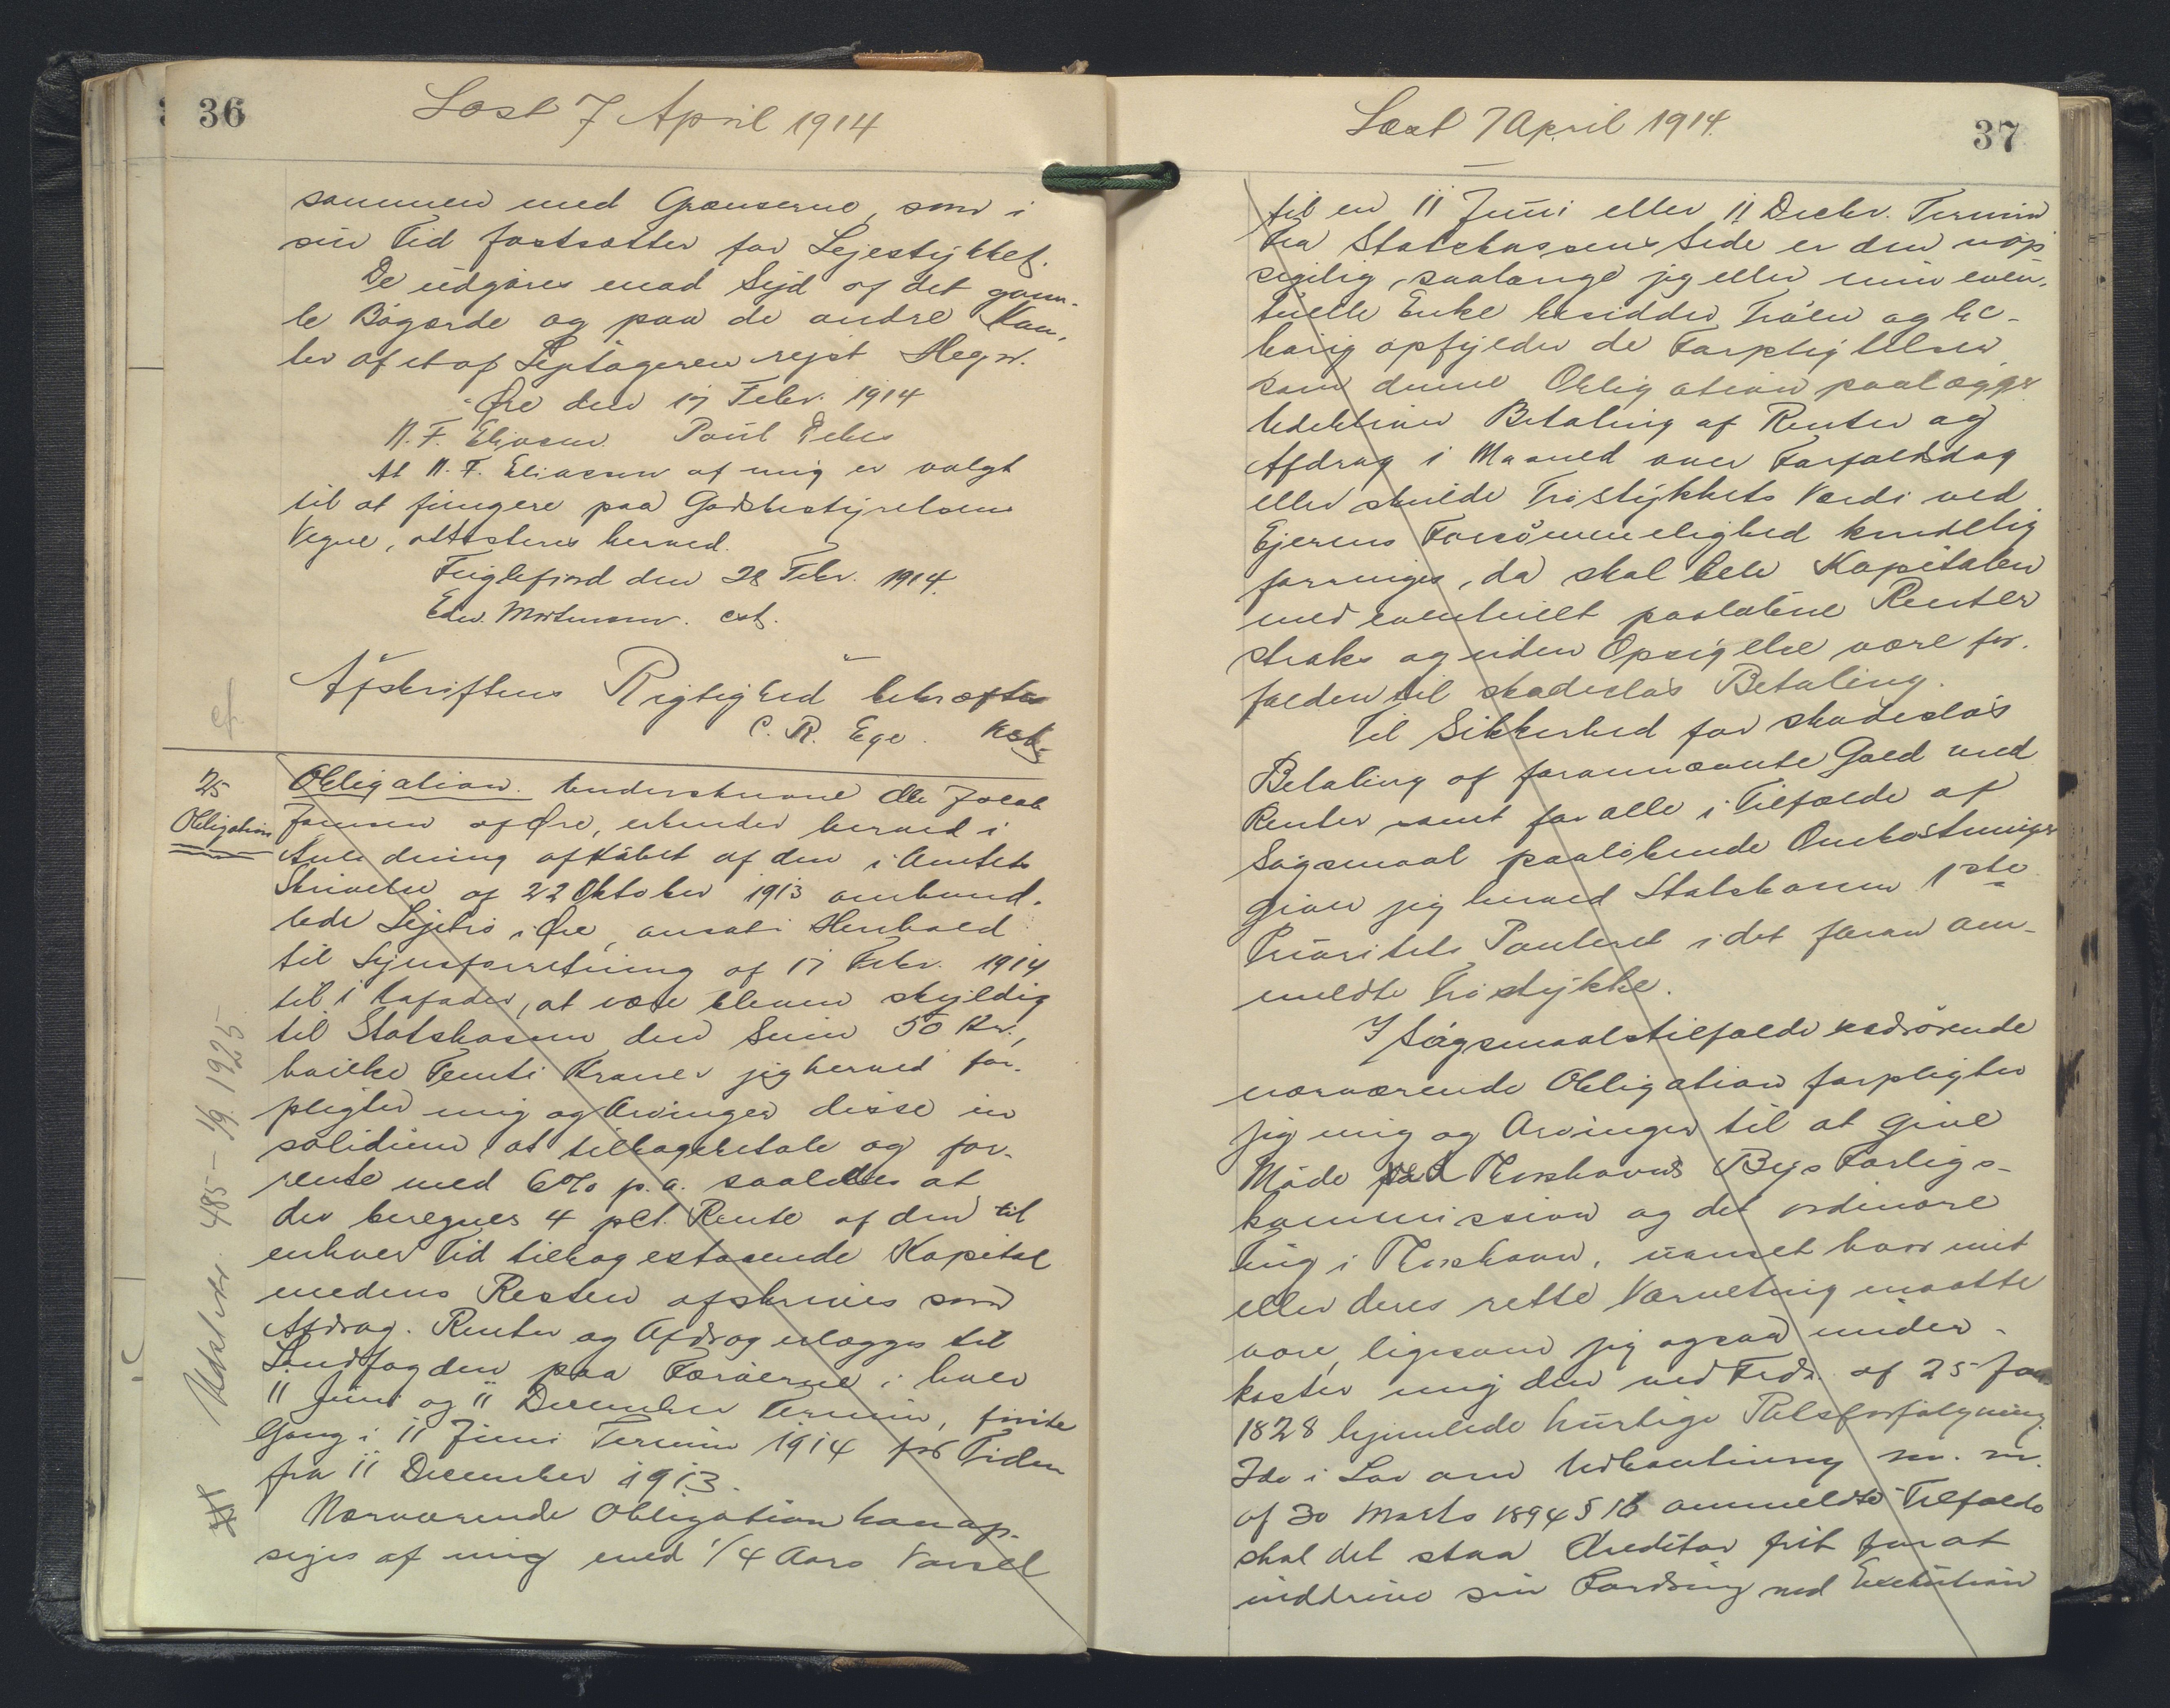 36
Læst 7 April 1914
sammen med Grænserne, som i
sin Tid fastsattes for Lejestykket.
De udgøres mod Syd af det gam-
le Bøgærde og paa de andre Kan-
ter af et af Lejetageren rejst Hegn.
Øre den 17 Febr. 1914
N. F. Eliasen Poul
At N. F. Eliasen af mig er valgt
til at fungere paa Godsbestyrelsens
Vegne, attesteres herved.
Fuglefjord den 28 Febr. 1914.
Edw. Mortensen. cst.
Afskriftens Rigtighed bekræftes
C. R. Ege. Kst.
cf.
25
Obligation
Obligation. Underskrevne Ole Jacob
Jensen af Øre, erkender herved i
Anledning af Købet af den i Amtets
Skrivelse af 22 Oktober 1913 omhand-
lede Lejetrø i Øre, ansat i Henhold
til Synsforretning af 17 Febr. 1914
til 1 Kofoder, at være bleven skyldig
til Statskassen den Sum 50 Kr.,
hvilke Femti Kroner jeg herved for-
pligter mig og Arvinger disse in
solidum at tilbagebetale og for-
rente med 6% p.a. saaledes at
der beregnes 4 pCt. Rente af den til
enhver Tid tilbagestaaende Kapital
medens Resten afskrives som
Afdrag. Renter og Afdrag erlægges til
Landfogden paa Færøerne i hver
11 Juni og 11 December Termin, første
Gang i 11 Juni Termin 1914 for Tiden
fra 11 December 1913.
Nærværende Obligation kan op-
siges af mig med 1/4 Aars Varsel
Udslettet. 485 - 1/9. 1925
37
Læst 7 April 1914.
til en 11 Juni eller 11 Decbr. Termin
Fra Statskassens Side er den uop-
sigelig, saalænge jeg eller min even-
tuelle Enke besidder Trøen og be-
hørig opfylder de Forpligtelser
som denne Obligation paalægger
Udebliver Betaling af Renter og
Afdrag i Maaned over Forfaldsdag
eller skulde Trøstykkets Værdi ved
Ejerens Forsømmelighed kendelig
forringes, da skal hele Kapitalen
med eventuelt paaløbne Renter
straks og uden Opsigelse være for-
falden til skadesløs Betaling.
Til Sikkerhed for skadesløs
Betaling af forannævnte Gæld med
Renter samt for alle i Tilfælde af
Søgsmaal paaløbende Omkostninger
giver jeg herved Statskassen 1ste
Prioritets Panteret i det foran om-
meldte Trøstykke.
I Søgsmaalstilfælde vedrørende
nærværende Obligation forpligter
jeg mig og Arvinger til at give
Møde ved Thorshavns Byes Forligs-
kommission og det ordinære
Ting i Thorshavn, uanset hvor mit
eller deres rette Værneting maatte
være, ligesom jeg ogsaa under-
kaster mig den ved Frdn. af 25 Jan
1828 hjemlede hurtige Retsforfølgning.
I de i Lov om Udpantning m. m.
af 30 Marts 1894 § 16 ommeldte Tilfælde
skal det staa Kreditor frit for at
inddrive sin Fordring ved Exekution